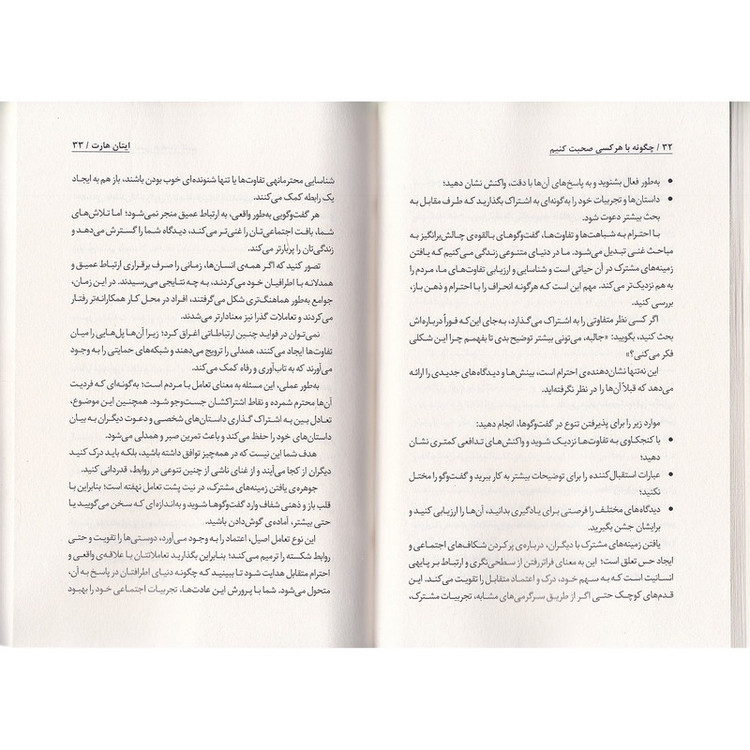 ۳۲ / چگونه با هر کسی صحبت کنیم
• به‌طور فعال بشنوید و به پاسخ‌های آن‌ها با دقت، واکنش نشان دهید؛
• داستان‌ها و تجربیات خود را به‌گونه‌ای به اشتراک بگذارید که طرف مقابل به
بحث بیشتر دعوت شود.
با احترام به شباهت‌ها و تفاوت‌ها، گفت‌وگوهای بالقوه‌ی چالش‌برانگیز به
مباحث غنی تبدیل می‌شود. ما در دنیای متنوعی زندگی می‌کنیم که یافتن
زمینه‌های مشترک در آن حیاتی است و شناسایی و ارزیابی تفاوت‌های ما، مردم را
به هم نزدیک‌تر می‌کند. مهم این است که هرگونه انحراف را با احترام و ذهن باز،
بررسی کنید.
اگر کسی نظر متفاوتی را به اشتراک می‌گذارد، به‌جای این‌که فوراً درباره‌اش
بحث کنید، بگویید: «جالبه، می‌تونی بیشتر توضیح بدی تا بفهمم چرا این شکلی
فکر می‌کنی؟»
این نه‌تنها نشان‌دهنده‌ی احترام است، بینش‌ها و دیدگاه‌های جدیدی را ارائه
می‌دهد که قبلاً آن‌ها را در نظر نگرفته‌اید.
موارد زیر را برای پذیرفتن تنوع در گفت‌وگوها، انجام دهید:
• با کنجکاوی به تفاوت‌ها نزدیک شوید و واکنش‌های تدافعی کمتری نشان
دهید؛
• عبارات استقبال‌کننده را برای توضیحات بیشتر به کار ببرید و گفت‌وگو را مختل
نکنید؛
• دیدگاه‌های مختلف را فرصتی برای یادگیری بدانید، آن‌ها را ارزیابی کنید و
برایشان جشن بگیرید.
یافتن زمینه‌های مشترک با دیگران، درباره‌ی پر کردن شکاف‌های اجتماعی و
ایجاد حس تعلق است؛ این به معنای فراتر رفتن از سطحی‌نگری و ارتباط بر پایه‌ی
انسانیت است که به سهم خود، درک و اعتماد متقابل را تقویت می‌کند. این
قدم‌های کوچک حتی اگر از طریق سرگرمی‌های مشابه، تجربیات مشترک،
ایتان هارت / ۳۳
شناسایی محترمانه‌ی تفاوت‌ها یا تنها شنونده‌ای خوب بودن باشند، باز هم به ایجاد
یک رابطه کمک می‌کنند.
هر گفت‌وگویی به‌طور واقعی، به ارتباط عمیق منجر نمی‌شود؛ اما تلاش‌های
شما، بافت اجتماعی‌تان را غنی‌تر می‌کند، دیدگاه شما را گسترش می‌دهد و
زندگی‌تان را پربارتر می‌کند.
تصور کنید که اگر همه‌ی انسان‌ها، زمانی را صرف برقراری ارتباط عمیق و
همدلانه با اطرافیان خود می‌کردند، به چه نتایجی می‌رسیدند. در این زمان،
جوامع به‌طور هماهنگ‌تری شکل می‌گرفتند، افراد در محل کار همکارانه‌تر رفتار
می‌کردند و تعاملات گذرا نیز معنادارتر می‌شدند.
نمی‌توان در فواید چنین ارتباطاتی اغراق کرد؛ زیرا آن‌ها پل‌هایی را میان
تفاوت‌ها ایجاد می‌کنند، همدلی را ترویج می‌دهند و شبکه‌های حمایتی را به وجود
می‌آورند که به تاب‌آوری و رفاه کمک می‌کند.
به‌طور عملی، این مسئله به معنای تعامل با مردم است؛ به‌گونه‌ای که فردیت
آن‌ها محترم شمرده و نقاط اشتراکشان جست‌وجو شود. همچنین این موضوع،
تعادل بین به اشتراک گذاری داستان‌های شخصی و دعوت دیگران به بیان
داستان‌های خود را حفظ می‌کند و باعث تمرین صبر و همدلی می‌شود.
هدف شما این نیست که در همه‌چیز توافق داشته باشید، بلکه باید درک کنید
دیگران از کجا می‌آیند و از غنای ناشی از چنین تنوعی در روابط، قدردانی کنید.
جوهره‌ی یافتن زمینه‌های مشترک، در نیت پشت تعامل نهفته است؛ بنابراین با
قلب باز و ذهنی شفاف وارد گفت‌وگوها شوید و به‌اندازه‌ای که سخن می‌گویید یا
حتی بیشتر، آماده‌ی گوش‌دادن باشید.
این نوع تعامل اصیل، اعتماد به وجود می‌آورد، دوستی‌ها را تقویت و حتی
روابط شکسته را ترمیم می‌کند؛ بنابراین بگذارید تعاملاتتان با علاقه‌ی واقعی و
احترام متقابل هدایت شود تا ببینید که چگونه دنیای اطرافتان در پاسخ به آن،
متحول می‌شود. شما با پرورش این عادت‌ها، تجربیات اجتماعی خود را بهبود